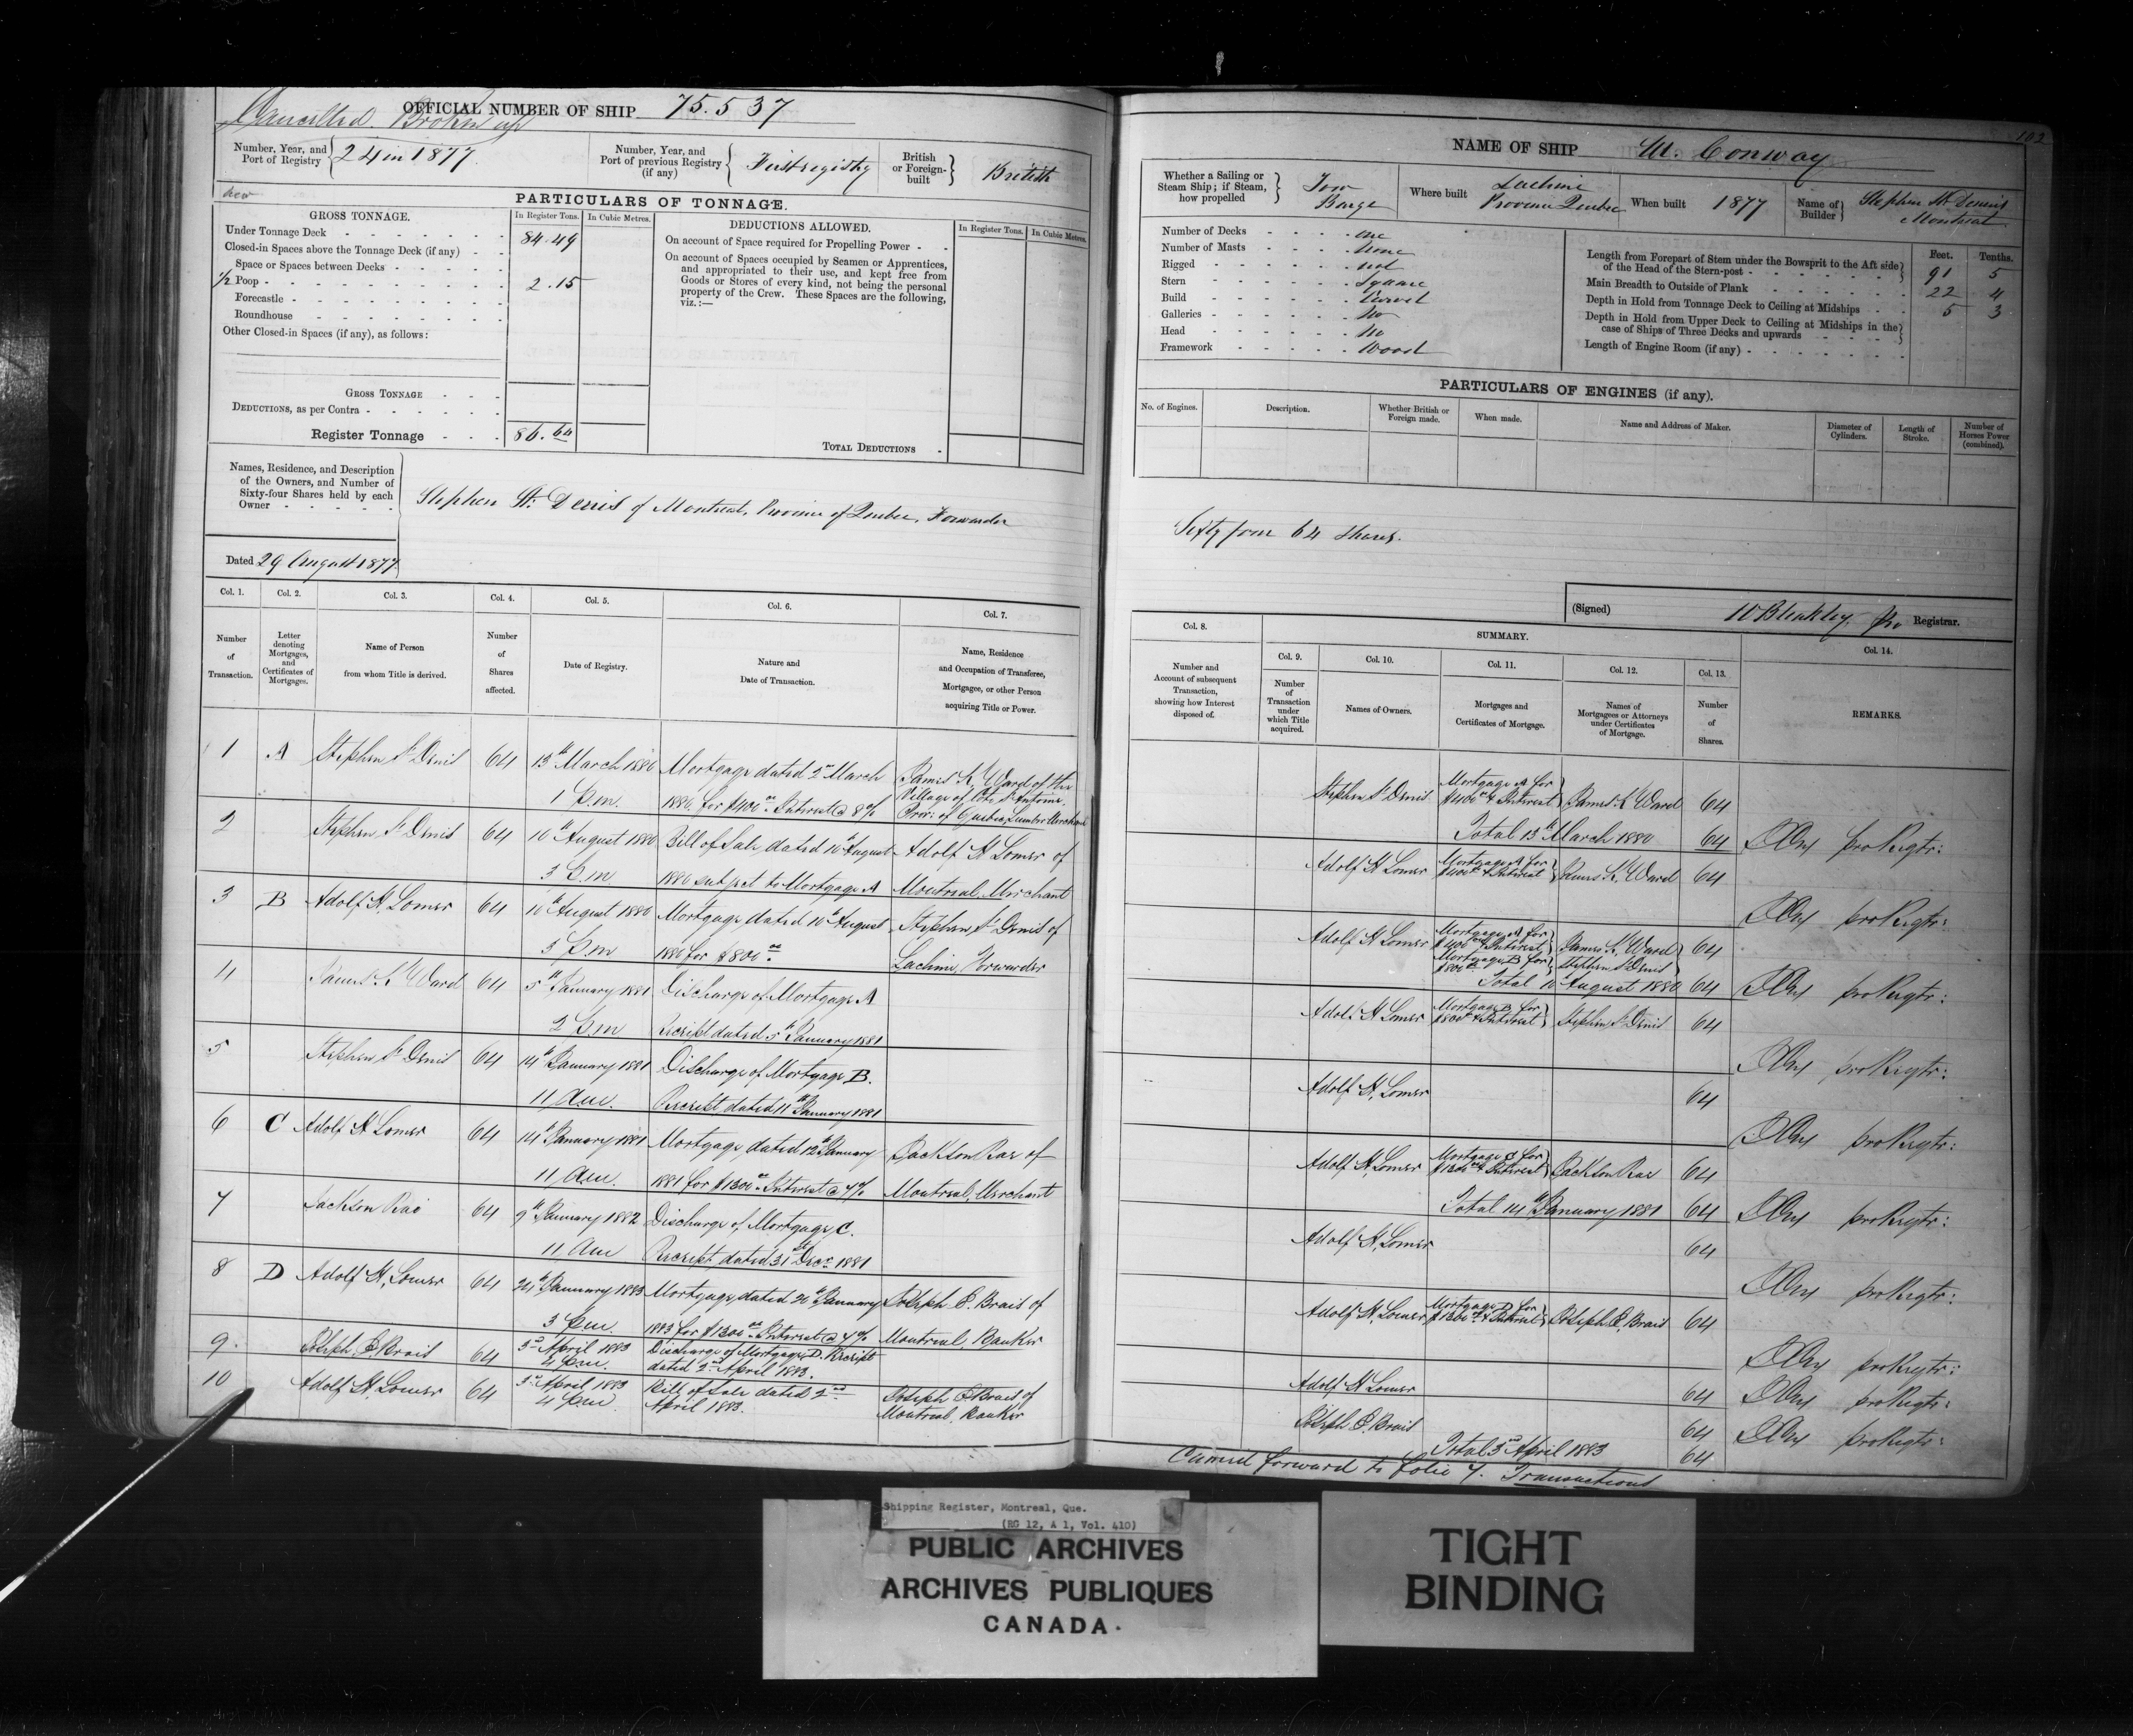 Cancelled. Broken up
OFFICIAL NUMBER OF SHIP 75.537
Number, Year, and Port of Registry 24 in 1877.
Number, Year, and Port of previous Registry (if any) First registry
British or Foreign-built British
new
PARTICULARS OF TONNAGE.
GROSS TONNAGE.
In Register Tons. In Cubic Metres.
Under Tonnage Deck 84.49
Closed-in Spaces above the Tonnage Deck (if any)
Space or Spaces between Decks
1/2 Poop 2.15
Forecastle
Roundhouse
Other Closed-in Spaces (if any), as follows:
GROSS TONNAGE
DEDUCTIONS, as per Contra
Register Tonnage 86.64
DEDUCTIONS ALLOWED.
In Register Tons. In Cubic Metres.
On account of Space required for Propelling Power
On account of Spaces occupied by Seamen or Apprentices,
and appropriated to their use, and kept free from
Goods or Stores of every kind, not being the personal
property of the Crew. These Spaces are the following,
viz.:—
TOTAL DEDUCTIONS
Names, Residence, and Description
of the Owners, and Number of
Sixty-four Shares held by each
Owner
Stephen St. Denis of Montreal, Province of Quebec, Forwarder
Dated 29 August 1877.
Col. 1. Col. 2. Col. 3. Col. 4. Col. 5. Col. 6. Col. 7.
Number of Transaction.
Letter denoting Mortgages, and Certificates of Mortgages.
Name of Person from whom Title is derived.
Number of Shares affected.
Date of Registry.
Nature and Date of Transaction.
Name, Residence and Occupation of Transferee, Mortgagee, or other Person acquiring Title or Power.
1 A Stephen St Denis 64 13th March 1880 Mortgage dated 2nd March James K Ward of the
Village of Côte St Antoine,
1 P.m. 1880 for $400 00 Interest @ 8% Prov: of Quebec, Lumber Merchant
2 Stephen St Denis 64 16th August 1880 Bill of Sale dated 16th August Adolf H Lomer of
3 P.m. 1880 subject to Mortgage A Montreal, Merchant
3 B Adolf H. Lomer 64 16th August 1880 Mortgage dated 16th August Stephen St Denis of
3 P.m 1880 for $800 00 Lachine, Forwarder
4 James K Ward 64 5th January 1881 Discharge of Mortgage A
2 P.m Receipt dated 5th January 1881
5 Stephen St Denis 64 14th January 1881 Discharge of Mortgage B.
11 Am. Receipt dated 11th January 1881
6 C Adolf H Lomer 64 14th January 1881 Mortgage dated 12th January Jackson Rae of
11 Am. 1881 for $1300 00 Interest @ 7% Montreal, Merchant
7 Jackson Rae 64 9th January 1882 Discharge of Mortgage C.
11 Am Receipt dated 31st Decr 1881
8 D Adolf H, Lomer 64 24th January 1883 Mortgage dated 20th January Joseph P. Brais of
3 Pm. 1883 for $1300 00 Interest @ 7% Montreal, Banker
9 Joseph P. Brais 64 3rd April 1883 Discharge of Mortgage D. Receipt
4 P.m. dated 2nd April 1883.
10 Adolf H. Lomer 64 3rd April 1883 Bill of Sale dated 2nd Joseph P Brais of
4 P.m April 1883. Montreal, Banker
102
NAME OF SHIP M. Conway
Whether a Sailing or Steam Ship; if Steam, how propelled Tow Barge
Where built Lachine Province Quebec
When built 1877
Name of Builder Stephen St Dennis Montreal
Number of Decks one
Number of Masts None
Rigged not
Stern Square
Build Carvel
Galleries No
Head No
Framework Wood
Feet. Tenths.
Length from Forepart of Stem under the Bowsprit to the Aft side of the Head of the Stern-post 91 5
Main Breadth to Outside of Plank 22 4
Depth in Hold from Tonnage Deck to Ceiling at Midships 5 3
Depth in Hold from Upper Deck to Ceiling at Midships in the case of Ships of Three Decks and upwards
Length of Engine Room (if any)
PARTICULARS OF ENGINES (if any).
No. of Engines. Description. Whether British or Foreign made. When made. Name and Address of Maker. Diameter of Cylinders. Length of Stroke. Number of Horses Power (combined).
Sixty four 64 Shares.
(Signed) W Bleakley, Pro Registrar.
Col. 8. SUMMARY. Col. 14.
Col. 9. Col. 10. Col. 11. Col. 12. Col. 13.
Number and Account of subsequent Transaction, showing how Interest disposed of.
Number of Transaction under which Title acquired.
Names of Owners.
Mortgages and Certificates of Mortgage.
Names of Mortgagees or Attorneys under Certificates of Mortgage.
Number of Shares.
REMARKS.
Stephen St Denis Mortgage A for $400 00 & Interest James K Ward 64
Total 13th March 1880 64 pro Regtr:
Adolf H Lomer Mortgage A for $400 00 & Interest James K Ward 64
pro Regtr:
Adolf H Lomer Mortgage A for $400 00 & Interest James K Ward 64
Mortgage B for $800 00 Stephen St Denis
Total 16th August 1880 64 pro Regtr:
Adolf H Lomer Mortgage B for $800 00 & Interest Stephen St Denis 64
pro Regtr:
Adolf H, Lomer 64
pro Regtr:
Adolf H, Lomer Mortgage C for $1300 00 & Interest Jackson Rae 64
Total 14th January 1881 64 pro Regtr:
Adolf H, Lomer 64
pro Regtr:
Adolf H. Lomer Mortgage D for $1300 00 & Interest Joseph P, Brais 64
pro Regtr:
Adolf H Lomer 64 pro Regtr:
Joseph P. Brais 64 pro Regtr:
Total 3rd April 1883 64
Carried forward to folio 7. Transactions
Shipping Register, Montreal, Que.
(RG 12, A 1, Vol. 410)
PUBLIC ARCHIVES
ARCHIVES PUBLIQUES
CANADA
TIGHT
BINDING